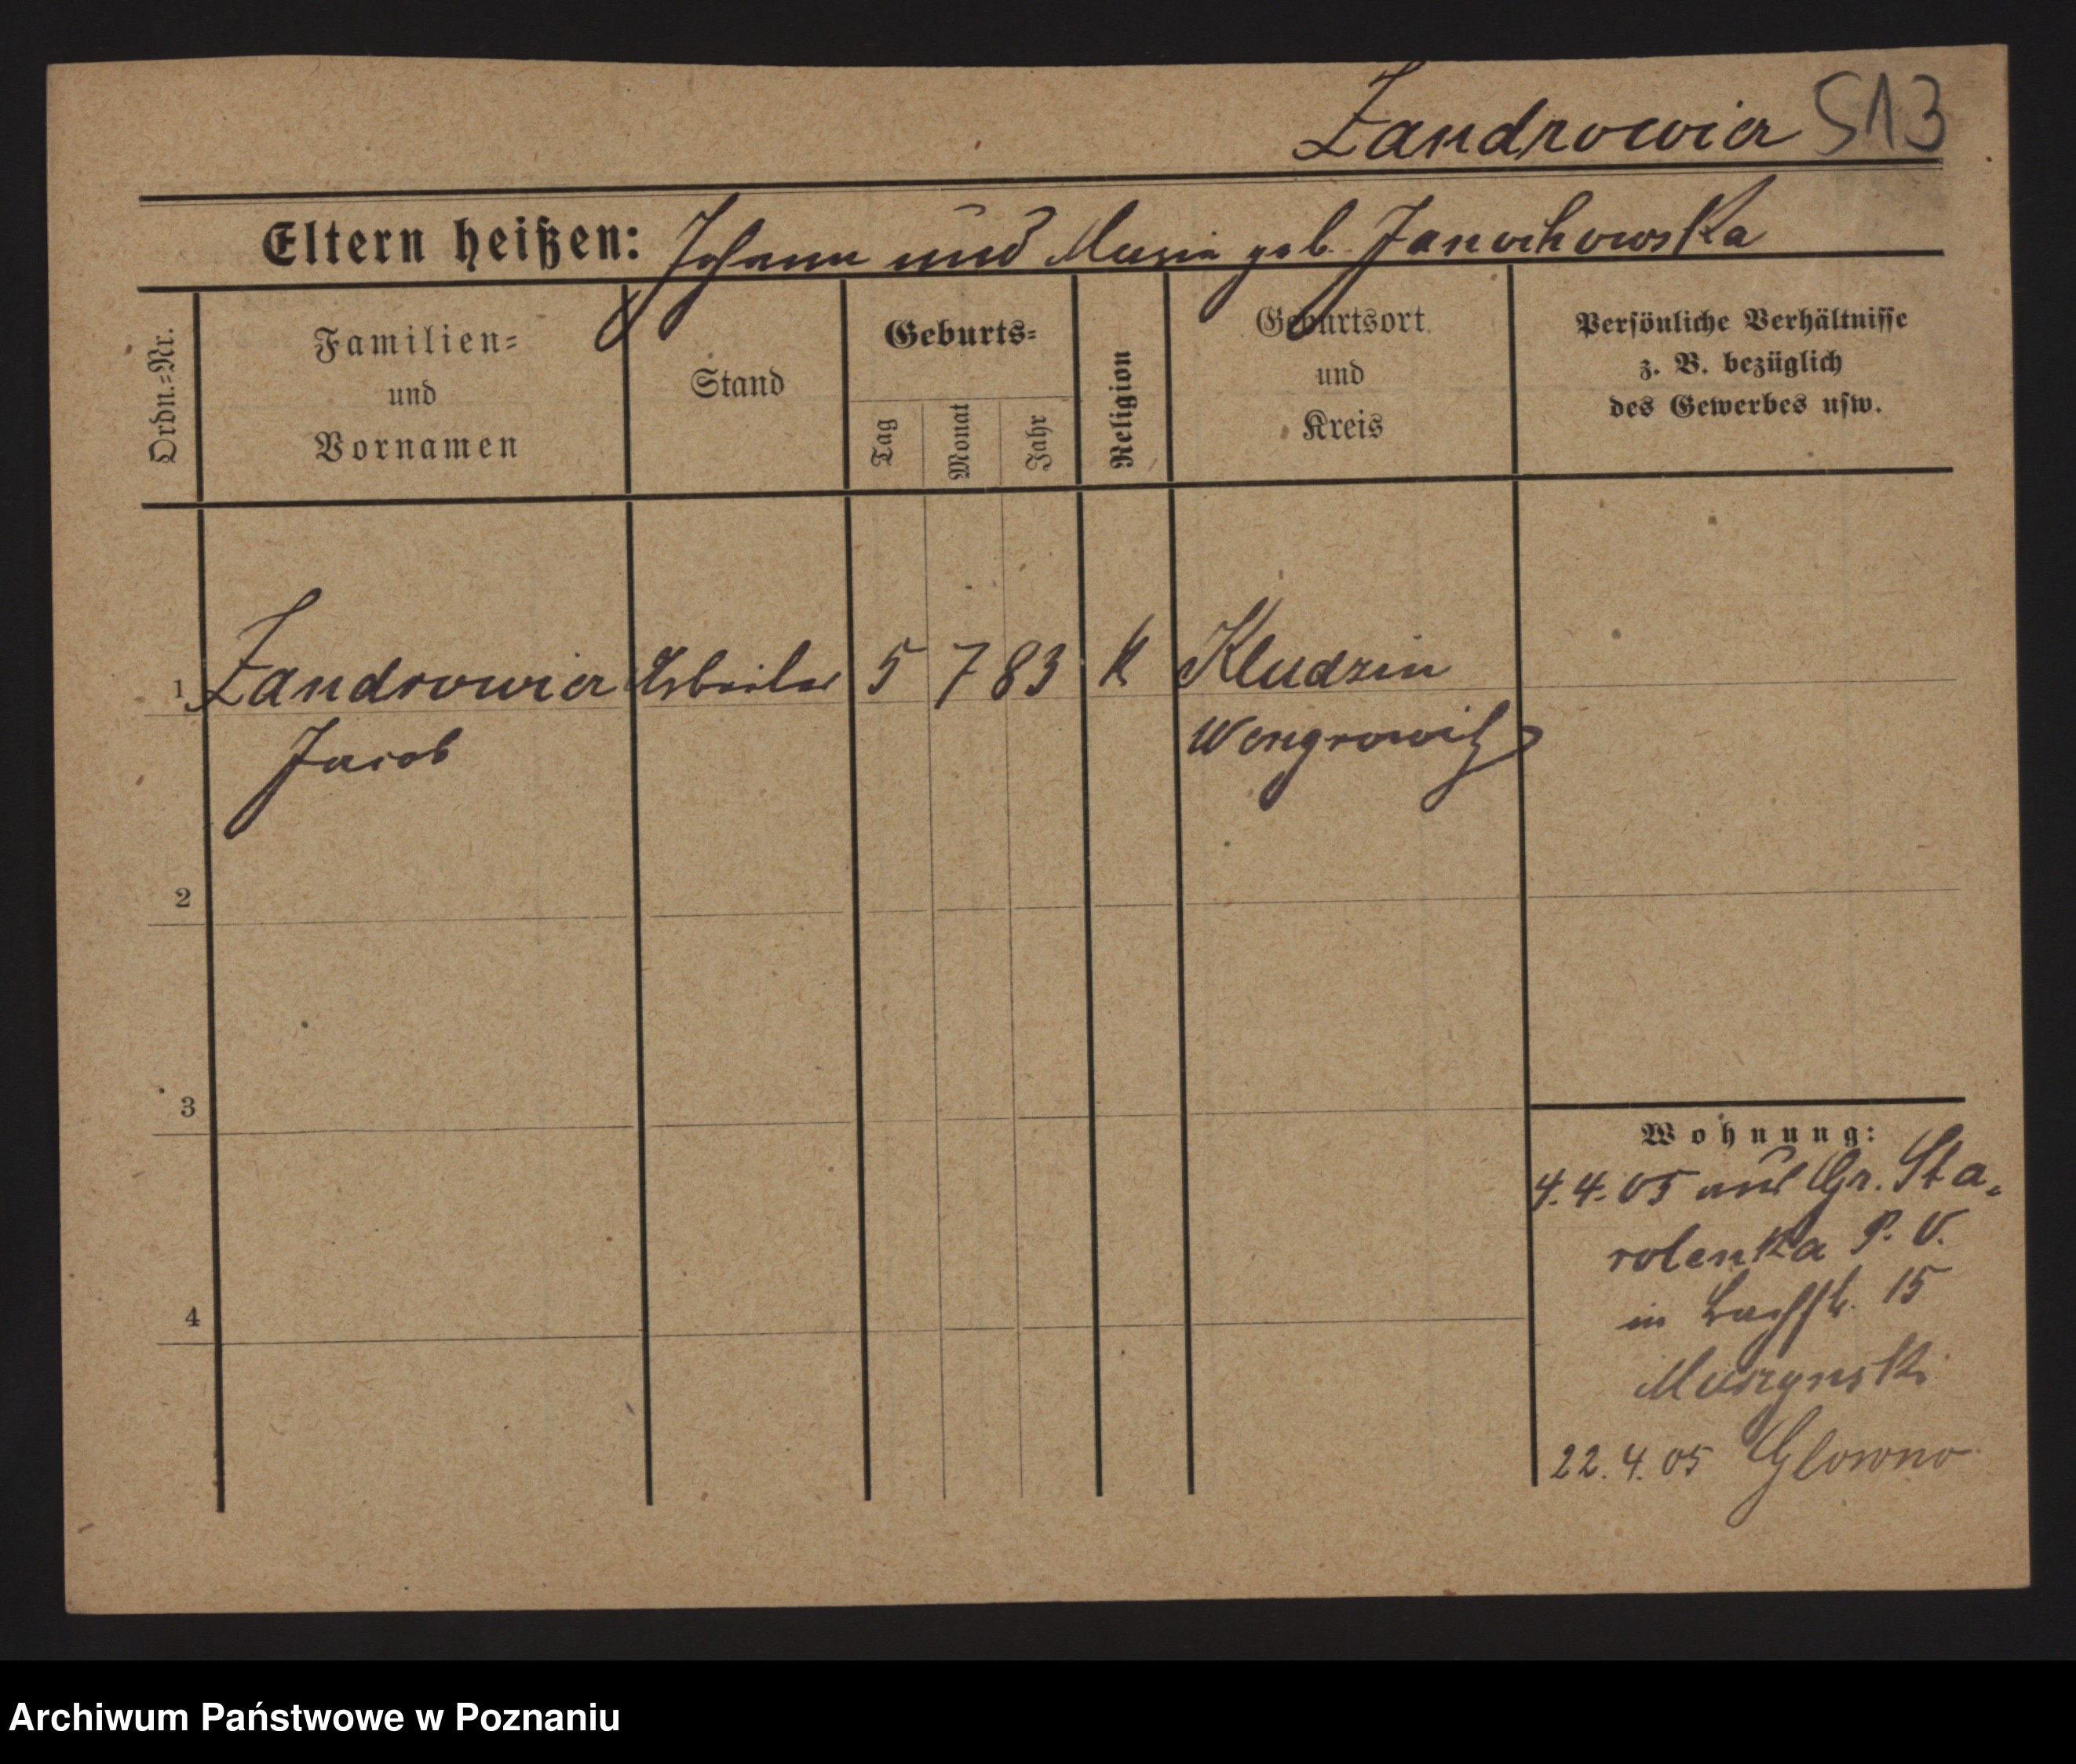 Zandrowicz 513
Eltern heißen: Johann und Maria geb. Janochowska
Ordn.=Nr.
Familien=
und
Vornamen
Stand
Geburts=
Tag
Monat
Jahr
Religion
Geburtsort
und
Kreis
Persönliche Verhältnisse
z. B. bezüglich
des Gewerbes usw.
1 Zandrowicz Arbeiter 5 7 83 K Kludzin
Jacob Wongrowitz
2
3
4
Wohnung:
4.4.05 aus Gr. Sta-
rolenka P. O.
in Bachstr. 15
Murzynski
22.4.05 Glowno
Archiwum Państwowe w Poznaniu